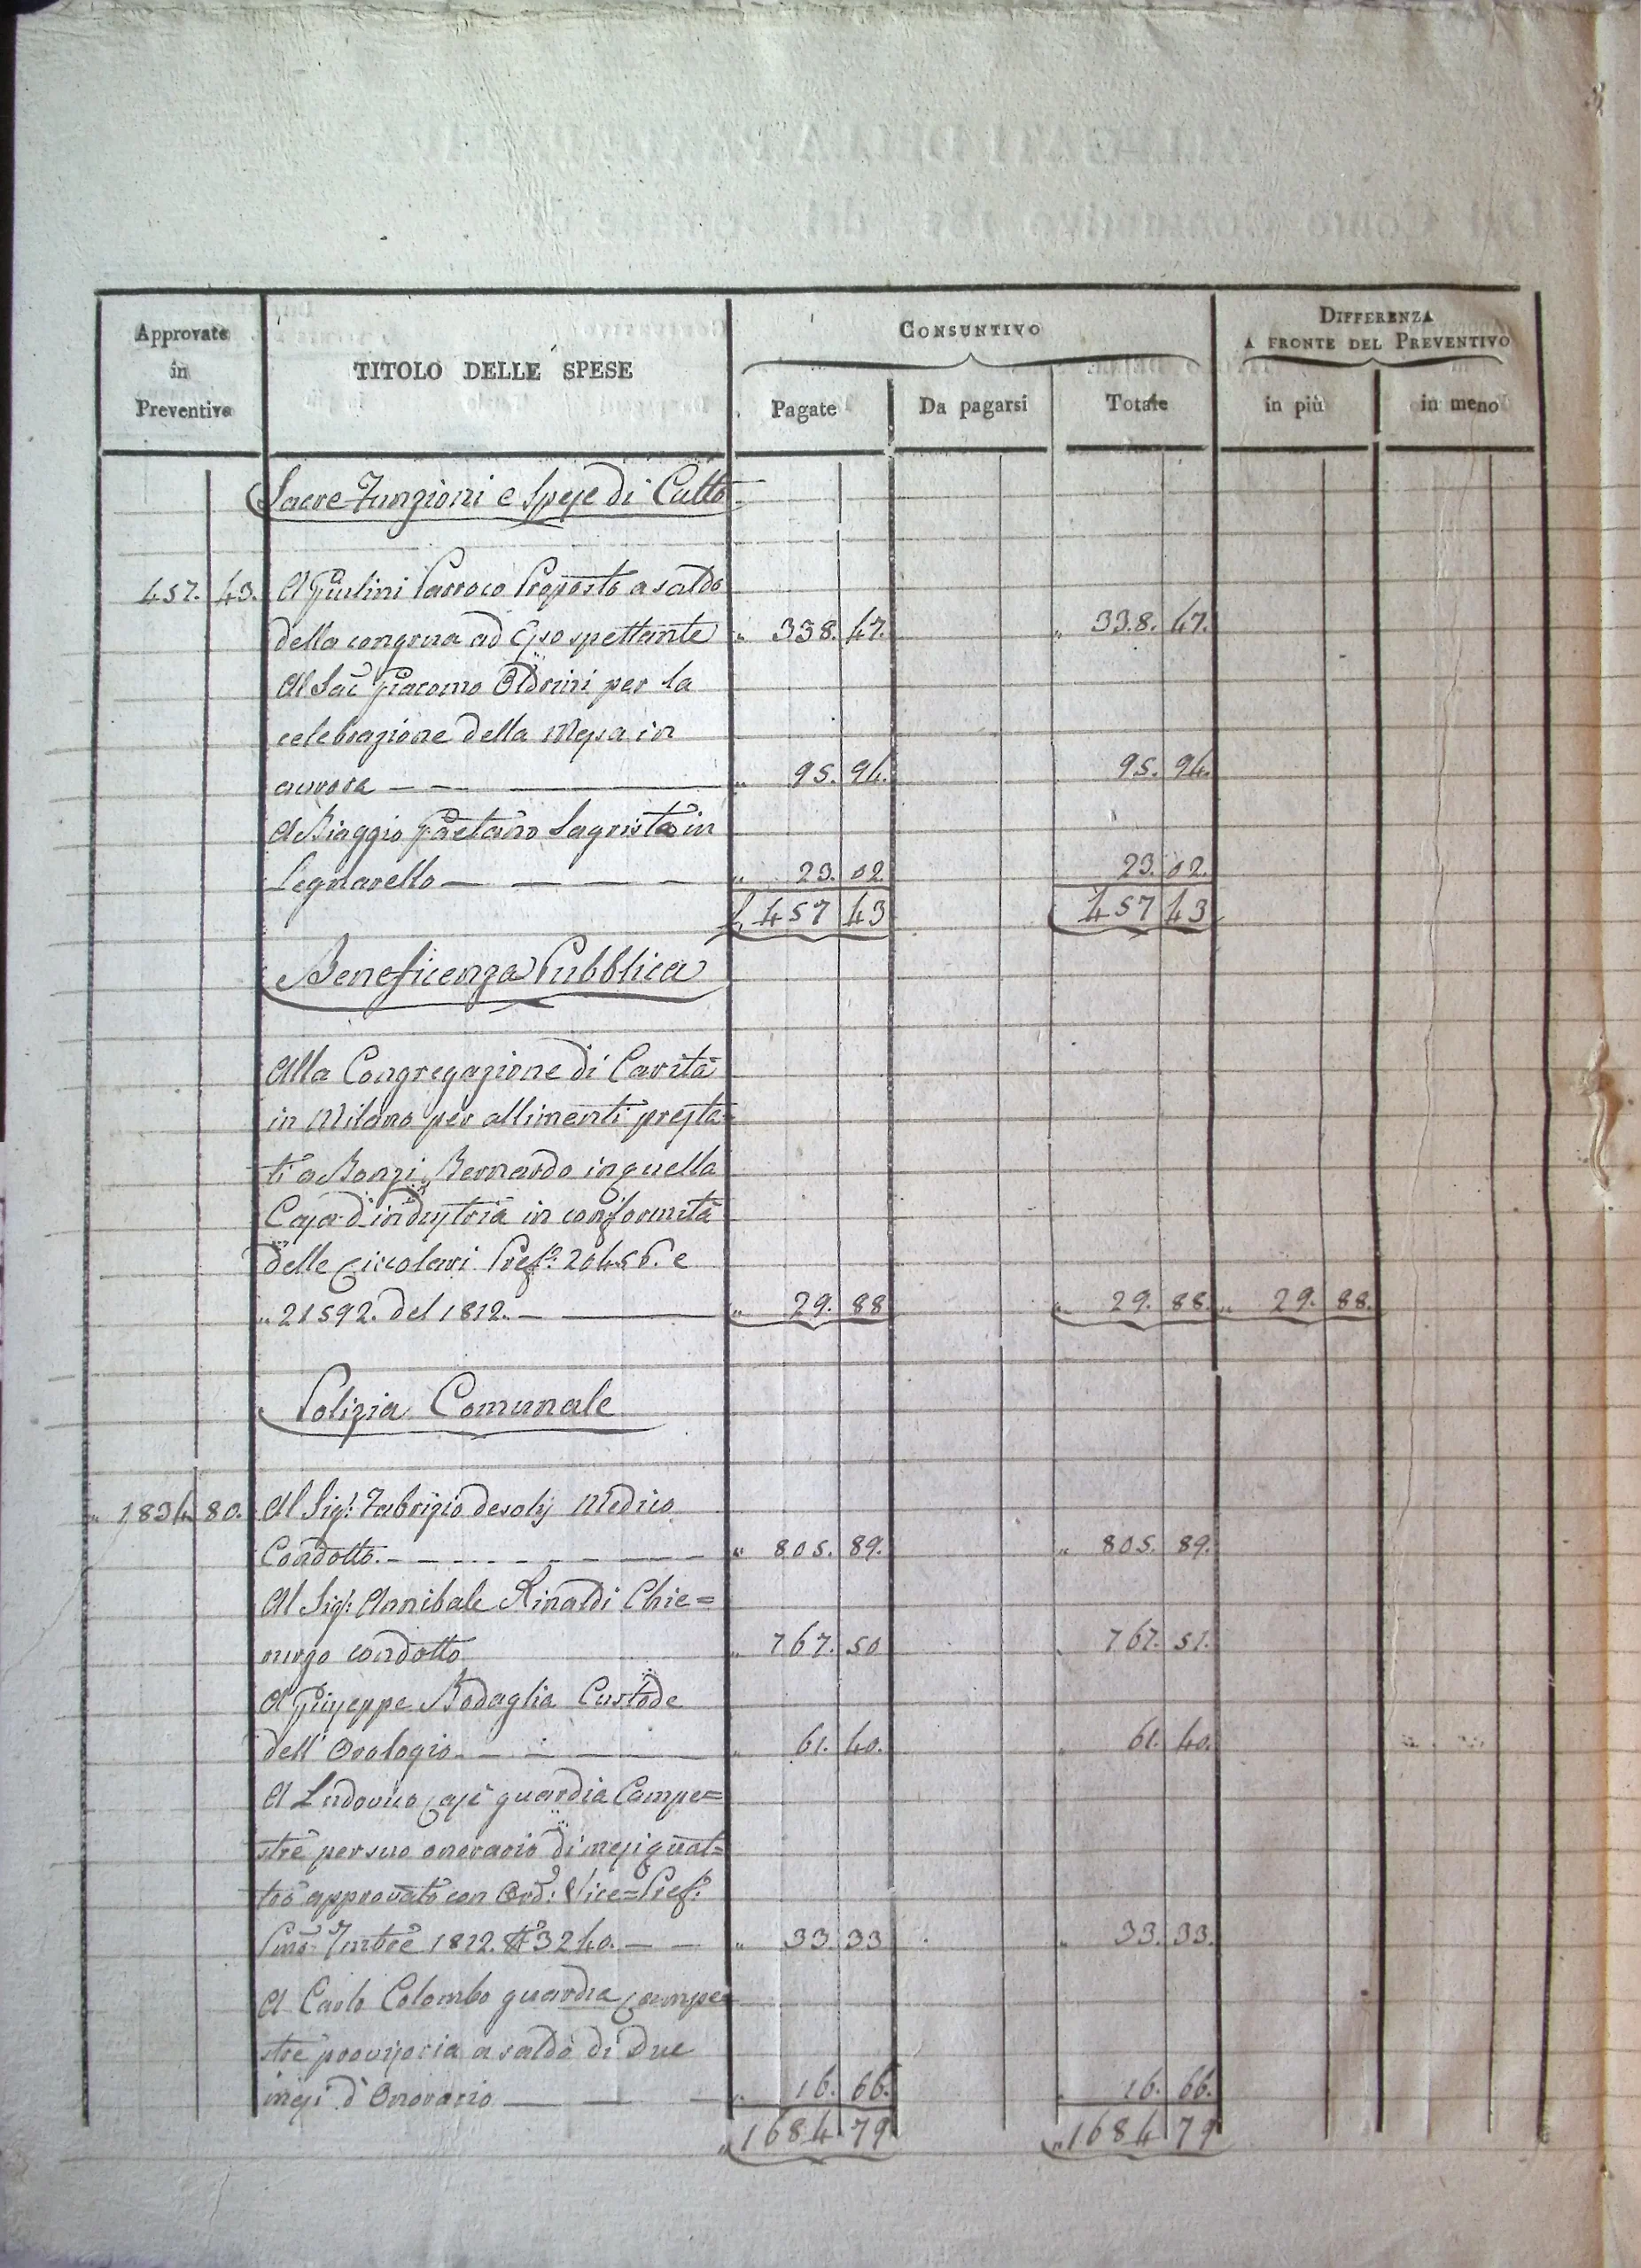 Approvate in Preventivo
TITOLO DELLE SPESE
CONSUNTIVO
DIFFERENZA A FRONTE DEL PREVENTIVO
Pagate
Da pagarsi
Totale
in più
in meno
Sacre Funzioni e Spese di Culto
457. 43. A Giulini Parroco Proposto a saldo
della congrua ad Esso spettante " 338. 47. " 338. 47.
Al Sac. Giacomo Oldrini per la
celebrazione della Messa in
aurora — — — " 95. 94. 95. 94.
A Biaggio Gaetano Sagrista in
Legnarello — — — — " 23. 02. 23. 02.
£ 457 43 457 43
Beneficenza Pubblica
Alla Congregazione di Carità
in Milano per allimenti presta=
ti a Bonzi Bernardo in quella
Casa d'industria in conformità
delle Circolari Pref. 20456. e
" 21592. del 1812. — — " 29. 88 " 29. 88. " 29. 88.
Polizia Comunale
" 1834. 80. Al Sig.r Fabrizio desolj Medico
Condotto. — — — — " 805. 89. " 805. 89.
Al Sig.r Annibale Rinaldi Chie=
rurgo condotto " 767. 50 " 767. 51.
A Giuseppe Bodaglia Custode
dell' Orologio. — — — " 61. 40. " 61. 40.
A Ludovico Casé guardia Campe=
stre per suo onorario di mesi quat=
tro approvato con Ord: Vice=Pref.
1812. N 3240. — — " 33. 33 " 33. 33.
A Carlo Colombo guardia campe=
stre provisoria a saldo di due
mesi d'Onorario — — — " 16. 66. " 16. 66.
" 1684 79 " 1684 79